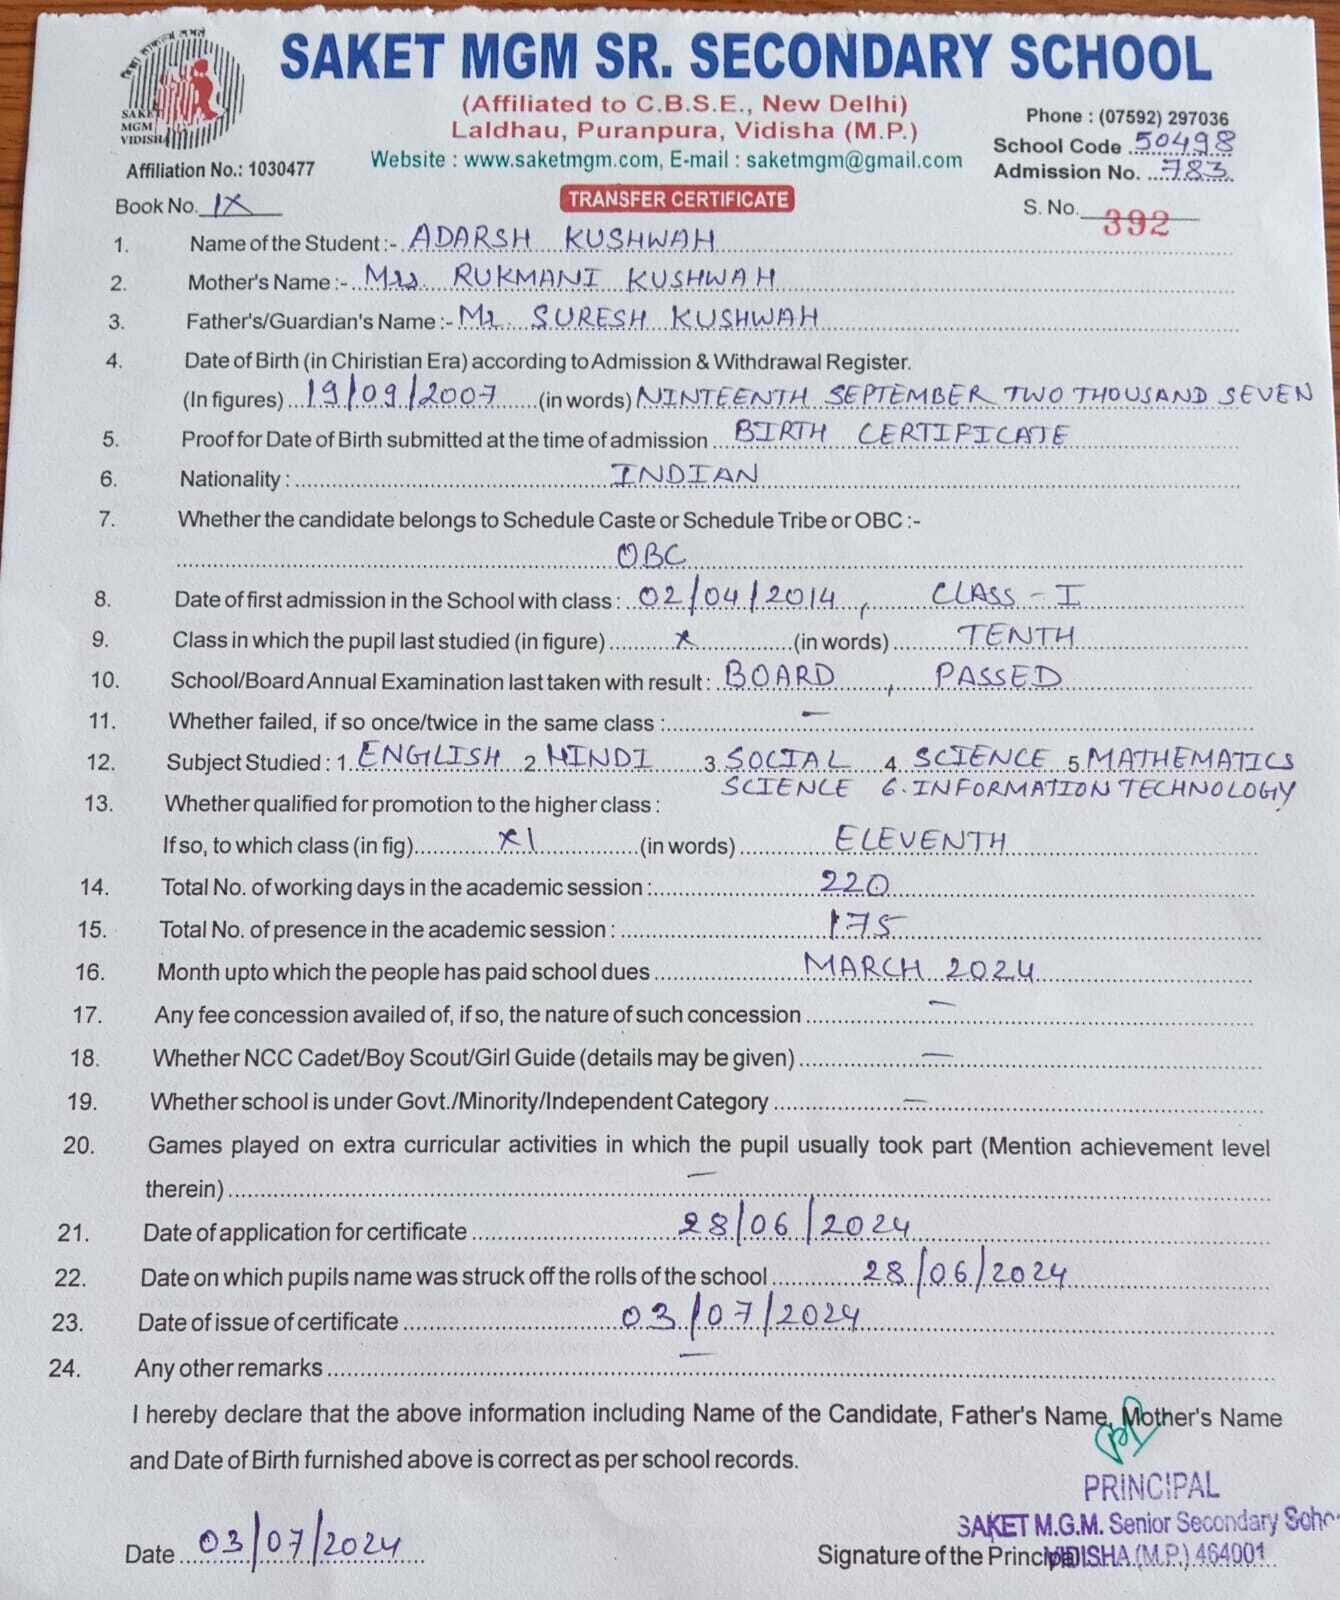 SAKET MGM SR. SECONDARY SCHOOL
(Affiliated to C.B.S.E., New Delhi)
Laldhau, Puranpura, Vidisha (M.P.)
Website : www.saketmgm.com, E-mail : saketmgm@gmail.com
SAKET
MGM
VIDISHA
Affiliation No.: 1030477
Phone : (07592) 297036
School Code 50498
Admission No. 783
Book No. IX
TRANSFER CERTIFICATE
S. No. 392
1. Name of the Student :- ADARSH KUSHWAH
2. Mother's Name :- Mrs. RUKMANI KUSHWAH
3. Father's/Guardian's Name :- Mr. SURESH KUSHWAH
4. Date of Birth (in Chiristian Era) according to Admission & Withdrawal Register.
(In figures) 19/09/2007 (in words) NINTEENTH SEPTEMBER TWO THOUSAND SEVEN
5. Proof for Date of Birth submitted at the time of admission BIRTH CERTIFICATE
6. Nationality : INDIAN
7. Whether the candidate belongs to Schedule Caste or Schedule Tribe or OBC :-
OBC
8. Date of first admission in the School with class : 02/04/2014, CLASS - I
9. Class in which the pupil last studied (in figure) X (in words) TENTH
10. School/Board Annual Examination last taken with result : BOARD, PASSED
11. Whether failed, if so once/twice in the same class : —
12. Subject Studied : 1. ENGLISH 2. HINDI 3. SOCIAL 4. SCIENCE 5. MATHEMATICS
SCIENCE 6. INFORMATION TECHNOLOGY
13. Whether qualified for promotion to the higher class :
If so, to which class (in fig) XI (in words) ELEVENTH
14. Total No. of working days in the academic session : 220
15. Total No. of presence in the academic session : 175
16. Month upto which the people has paid school dues MARCH 2024
17. Any fee concession availed of, if so, the nature of such concession —
18. Whether NCC Cadet/Boy Scout/Girl Guide (details may be given) —
19. Whether school is under Govt./Minority/Independent Category —
20. Games played on extra curricular activities in which the pupil usually took part (Mention achievement level
therein) —
21. Date of application for certificate 28/06/2024
22. Date on which pupils name was struck off the rolls of the school 28/06/2024
23. Date of issue of certificate 03/07/2024
24. Any other remarks —
I hereby declare that the above information including Name of the Candidate, Father's Name, Mother's Name
and Date of Birth furnished above is correct as per school records.
PRINCIPAL
SAKET M.G.M. Senior Secondary Scho
VIDISHA (M.P.) 464001
Date 03/07/2024
Signature of the Principal